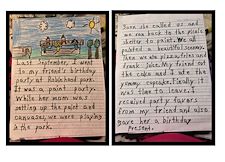 Last September, I went
to my friend's birthday
party at Robichand park.
It was a paint party.
While her mom was
setting up the paint and
canvases, we were playing
in the park.
Soon she called us and
we ran back to the picnic
shelter to paint. We all
painted a beautiful scenery.
Then we ate pizza, fries and
drank juice. My friend cut
the cake and I ate the
yummy cupcake. Finally it
was time to leave. I
received party favors
from my friend and also
gave her a birthday
present.